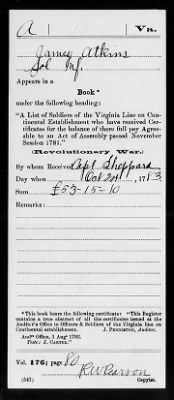 A | 1 | Va.
James Atkins
Sol Inf.
Appears in a
Book*
under the following heading:
"A List of Soldiers of the Virginia Line on Continental Establishment who have received Certificates for the balance of there full pay Agreeable to an Act of Assembly passed November Session 1781."
(Revolutionary War.)
By whom Received Capt Sheppard
Day when Oct 24, 1783.
Sum £53-15-10
Remarks:
*This book bears the following certificate: "This Register contains a true abstract of all the certificates issued at the Auditor's Office to Officers & Soldiers of the Virginia line on Continental establishment. J. Pendleton, Auditor.
Aud's Office, 1 Augt 1792.
Teste: J. Carter."
Vol. 176; page 80
R W Pearson
(545) Copyist.